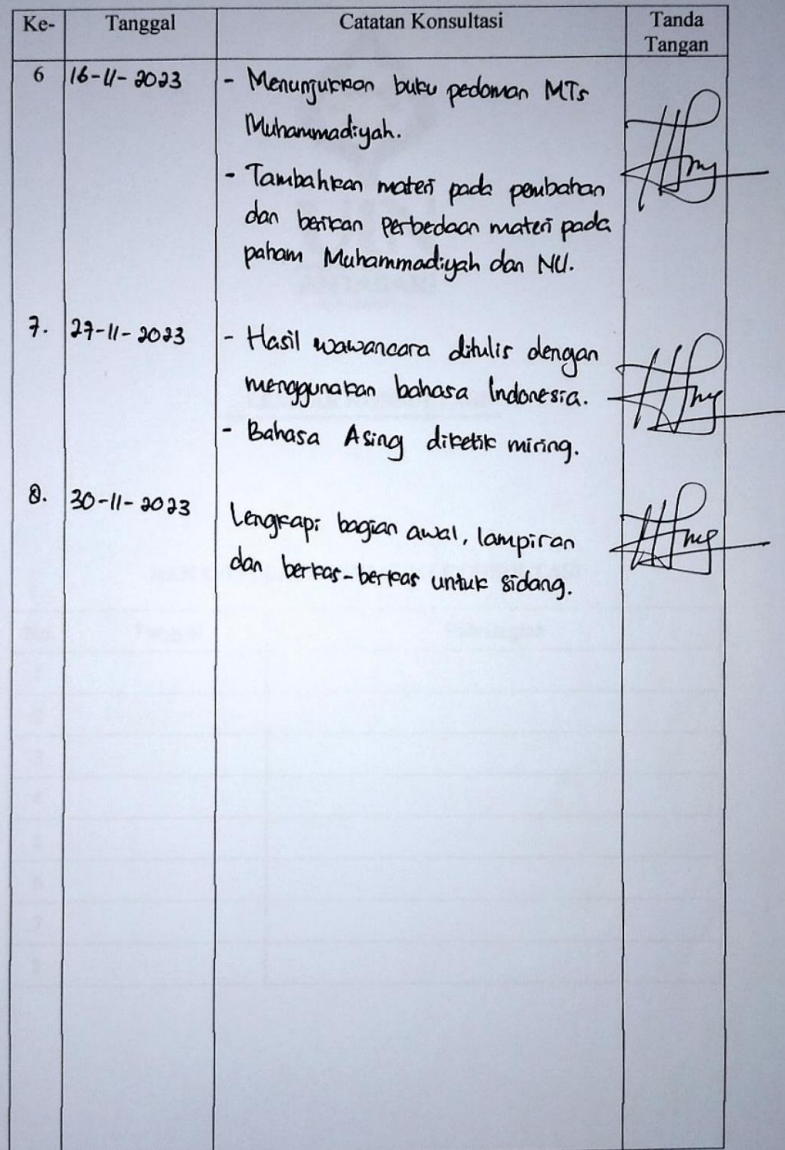 Ke- Tanggal Catatan Konsultasi Tanda Tangan
6 16-11-2023 - Menunjukkan buku pedoman MTs
Muhammadiyah.
- Tambahkan materi pada pembahan
dan berikan perbedaan materi pada
paham Muhammadiyah dan NU.
7. 27-11-2023 - Hasil wawancara ditulis dengan
menggunakan bahasa Indonesia.
- Bahasa Asing diketik miring.
8. 30-11-2023 Lengkapi bagian awal, lampiran
dan berkas-berkas untuk sidang.